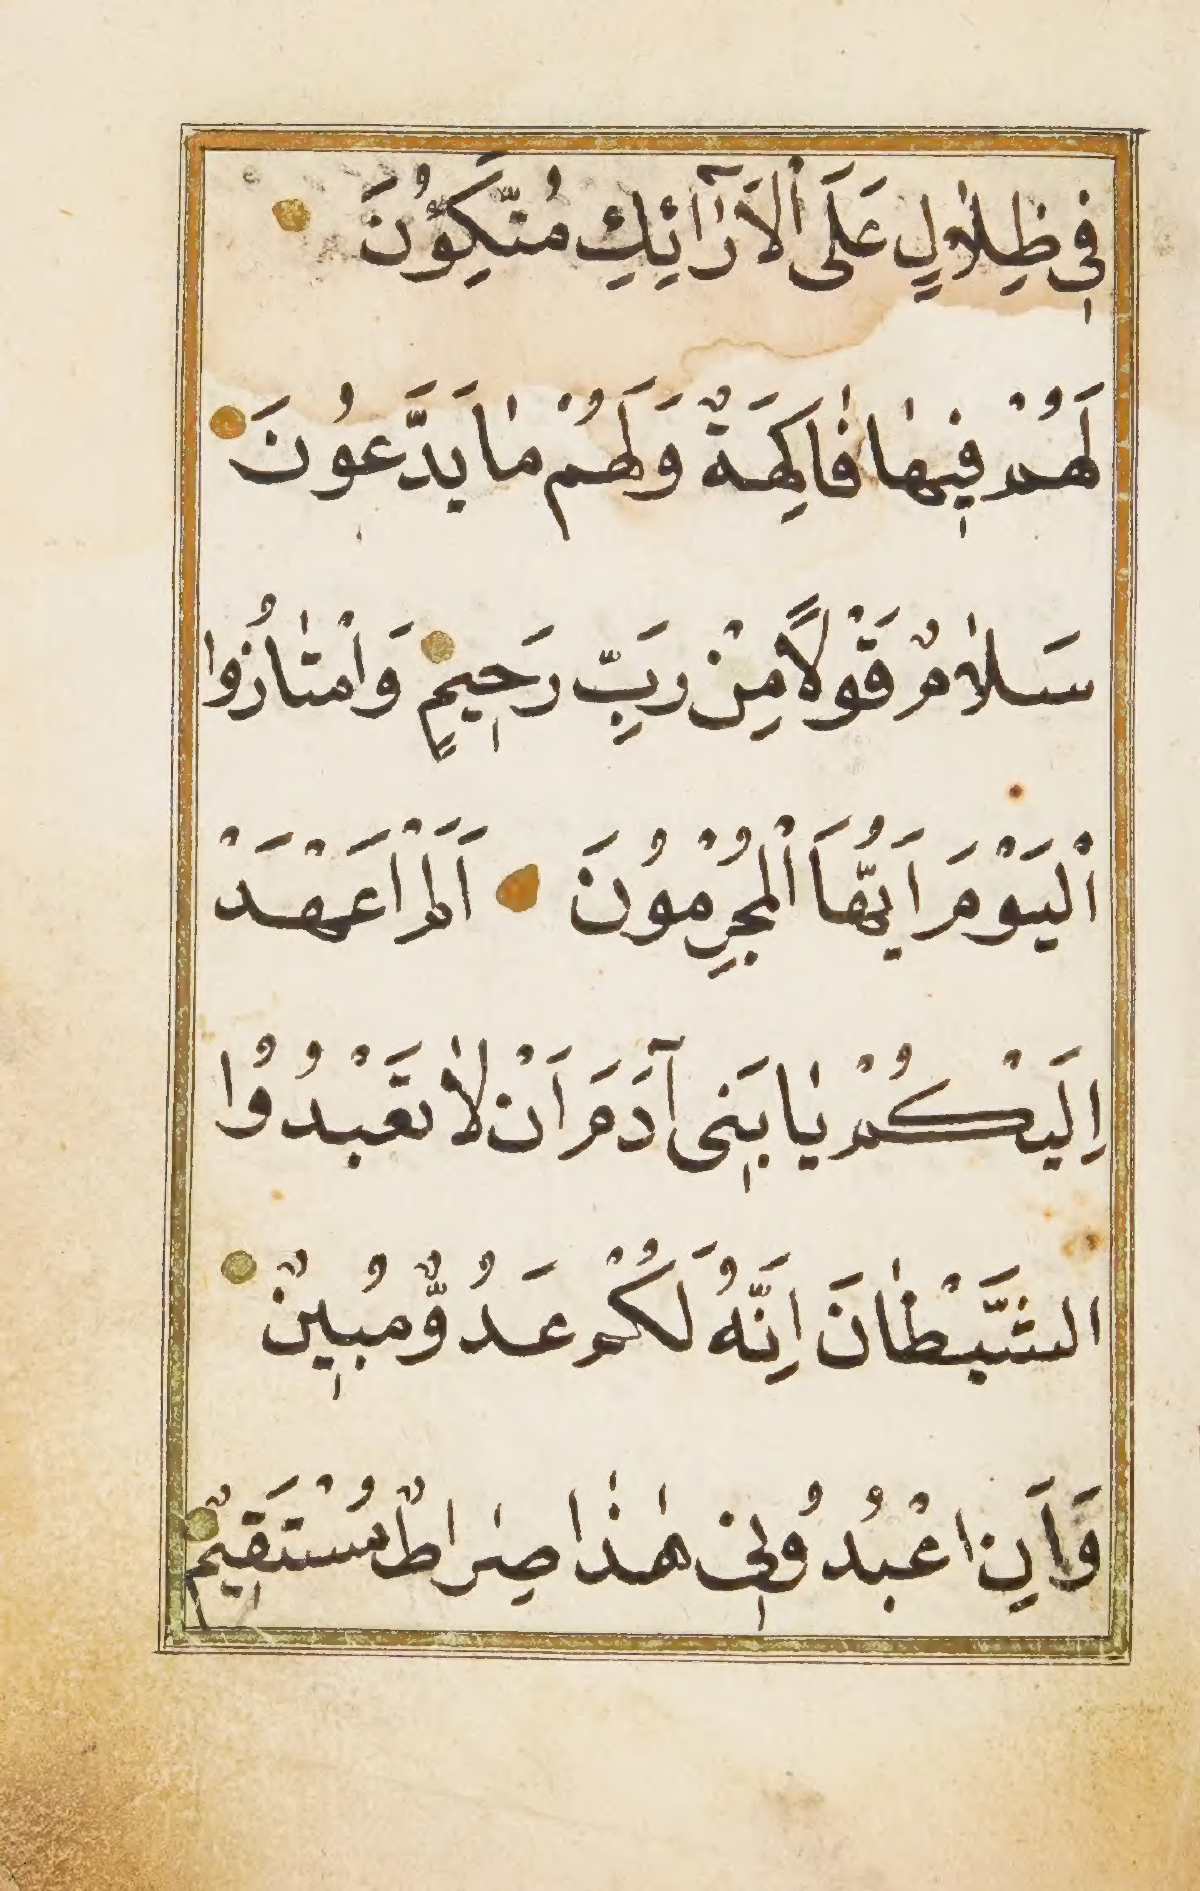 فِي ظِلَالٍ عَلَى الْاَرَآئِكِ مُتَّكِؤُنَ
لَهُمْ فِيهَا فَاكِهَةٌ وَلَهُمْ مَا يَدَّعُونَ
سَلَامٌ قَوْلًا مِنْ رَبٍّ رَحِيمٍ وَامْتَازُوا
الْيَوْمَ اَيُّهَا الْمُجْرِمُونَ اَلَمْ اَعْهَدْ
اِلَيْكُمْ يَا بَنِى آدَمَ اَنْ لَا تَعْبُدُوا
الشَّيْطَانَ اِنَّهُ لَكُمْ عَدُوٌّ مُبِينٌ
وَاَنِ اعْبُدُونِى هٰذَا صِرَاطٌ مُسْتَقِيمٌ